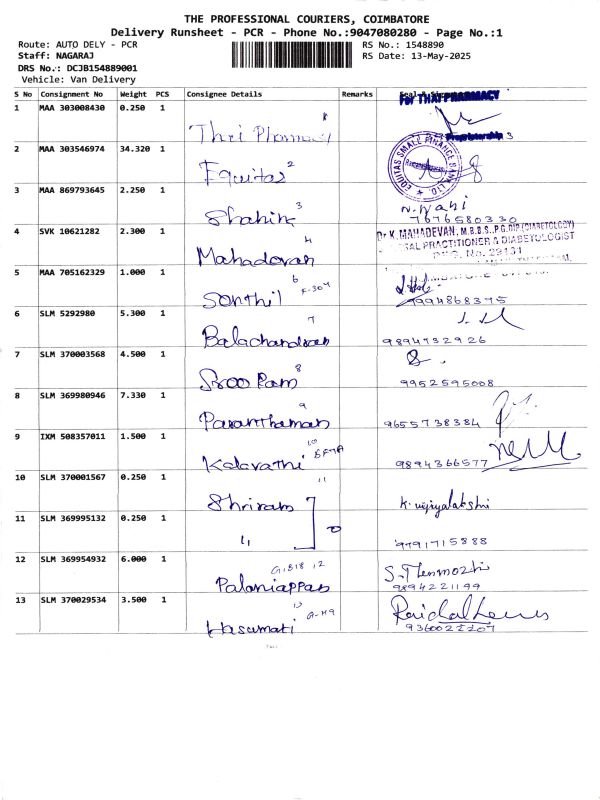 THE PROFESSIONAL COURIERS, COIMBATORE
Delivery Runsheet - PCR - Phone No.:9047080280 - Page No.:1
Route: AUTO DELY - PCR
RS No.: 1548890
Staff: NAGARAJ
RS Date: 13-May-2025
DRS No.: DCJB154889001
Vehicle: Van Delivery
S No Consignment No Weight PCS Consignee Details Remarks
FOR THAI PHARMACY
1 MAA 303008430 0.250 1
2 MAA 303546974 34.320 1 Equitas 2
EQUITAS SMALL FINANCE BANK LTD.
3 MAA 869793645 2.250 1 Shahin 3
N. Vani
7676580330
4 SVK 10621282 2.300 1 Mahadevan 4
Dr K. MAHADEVAN, M.B.B.S., P.G.DIP.(DIABETOLOGY)
PRACTITIONER & DIABETOLOGIST
REG. No. 29131
5 MAA 705162329 1.000 1 Senthil 6 F-304
9994868375
6 SLM 5292980 5.300 1 Balachandran 7
9894732926
7 SLM 370003568 4.500 1 Sree Ram 8
9952595008
8 SLM 369980946 7.330 1 Paranthaman 9
9655738384
9 IXM 508357011 1.500 1 Kalavathi 10
9894366577
10 SLM 370001567 0.250 1 Shriram 11
11 SLM 369995132 0.250 1 "
9791715888
12 SLM 369954932 6.000 1 Palaniappan G.B18 12
S. Thenmozhi
9894221199
13 SLM 370029534 3.500 1 Hasumati G-H9
9360022207